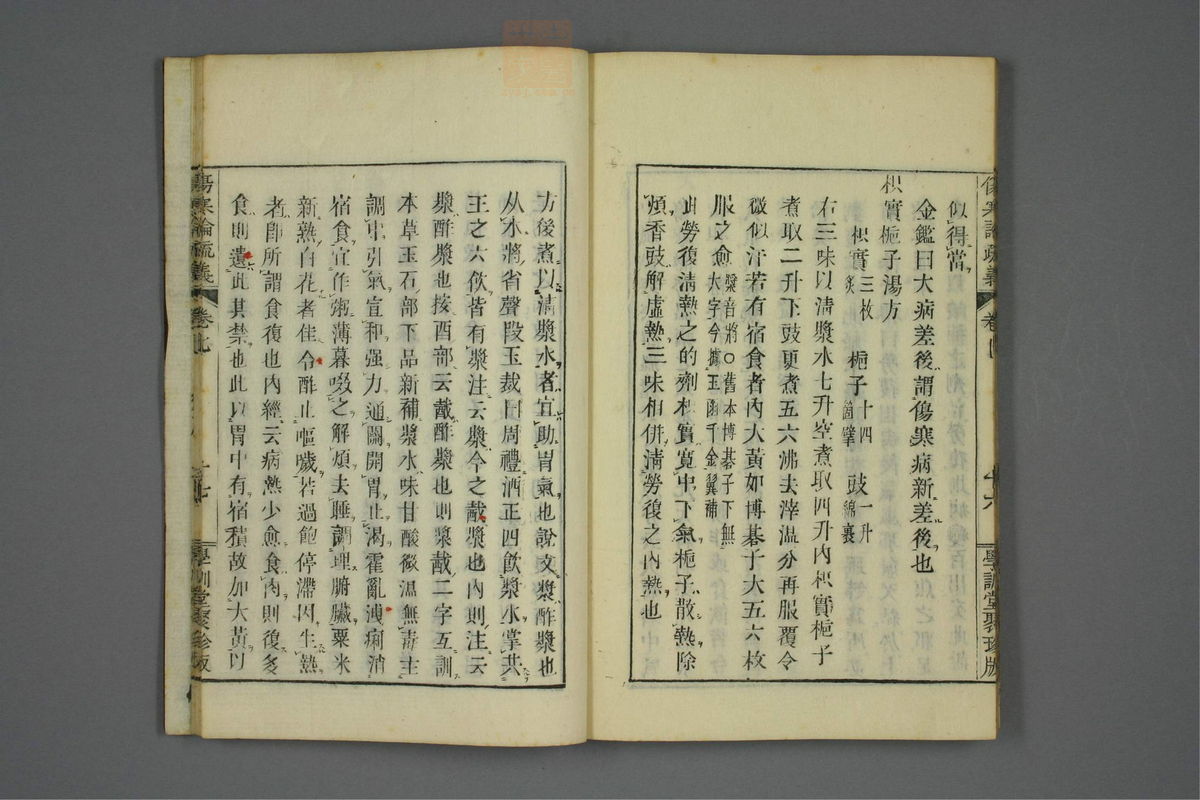 傷寒論疏義
學訓堂聚珍版
似得當
金鑑曰大病差後謂傷寒病新差後也
枳實梔子湯方
枳實三枚炙 梔子十四箇擘 豉一升綿裹
右三味以清漿水七升空煮取四升內枳實梔子
煮取二升下豉更煮五六沸去滓溫分再服覆令
微似汗若有宿食者內大黃如博碁子大五六枚
服之愈漿音將○舊本博碁子下無大字今據玉函千金翼補
此勞復清熱之的劑枳實寬中下氣梔子散熱除
煩香豉解虛熱三味相併清勞復之內熱也
方後煮以清漿水者宜助胃氣也說文漿酢漿也
从水將省聲段玉裁曰周禮酒正四飲漿水掌共
王之六飲皆有漿注云漿今之酨漿也內則注云
漿酢酨也按酉部云酨酢漿也則漿酨二字互訓
本草玉石部下品新補漿水味甘酸微溫無毒主
調中引氣宣和强力通關開胃止渴霍亂洩痢消
宿食宜作粥薄暮啜之解煩去睡調理腑臟粟米
新熟白花者佳令酢止嘔噦若過飽停滯因生熱
者卽所謂食復也內經云病熱少愈食肉則復多
食則遺此其禁也此以胃中有宿積故加大黃以
傷寒論疏義
學訓堂聚珍版